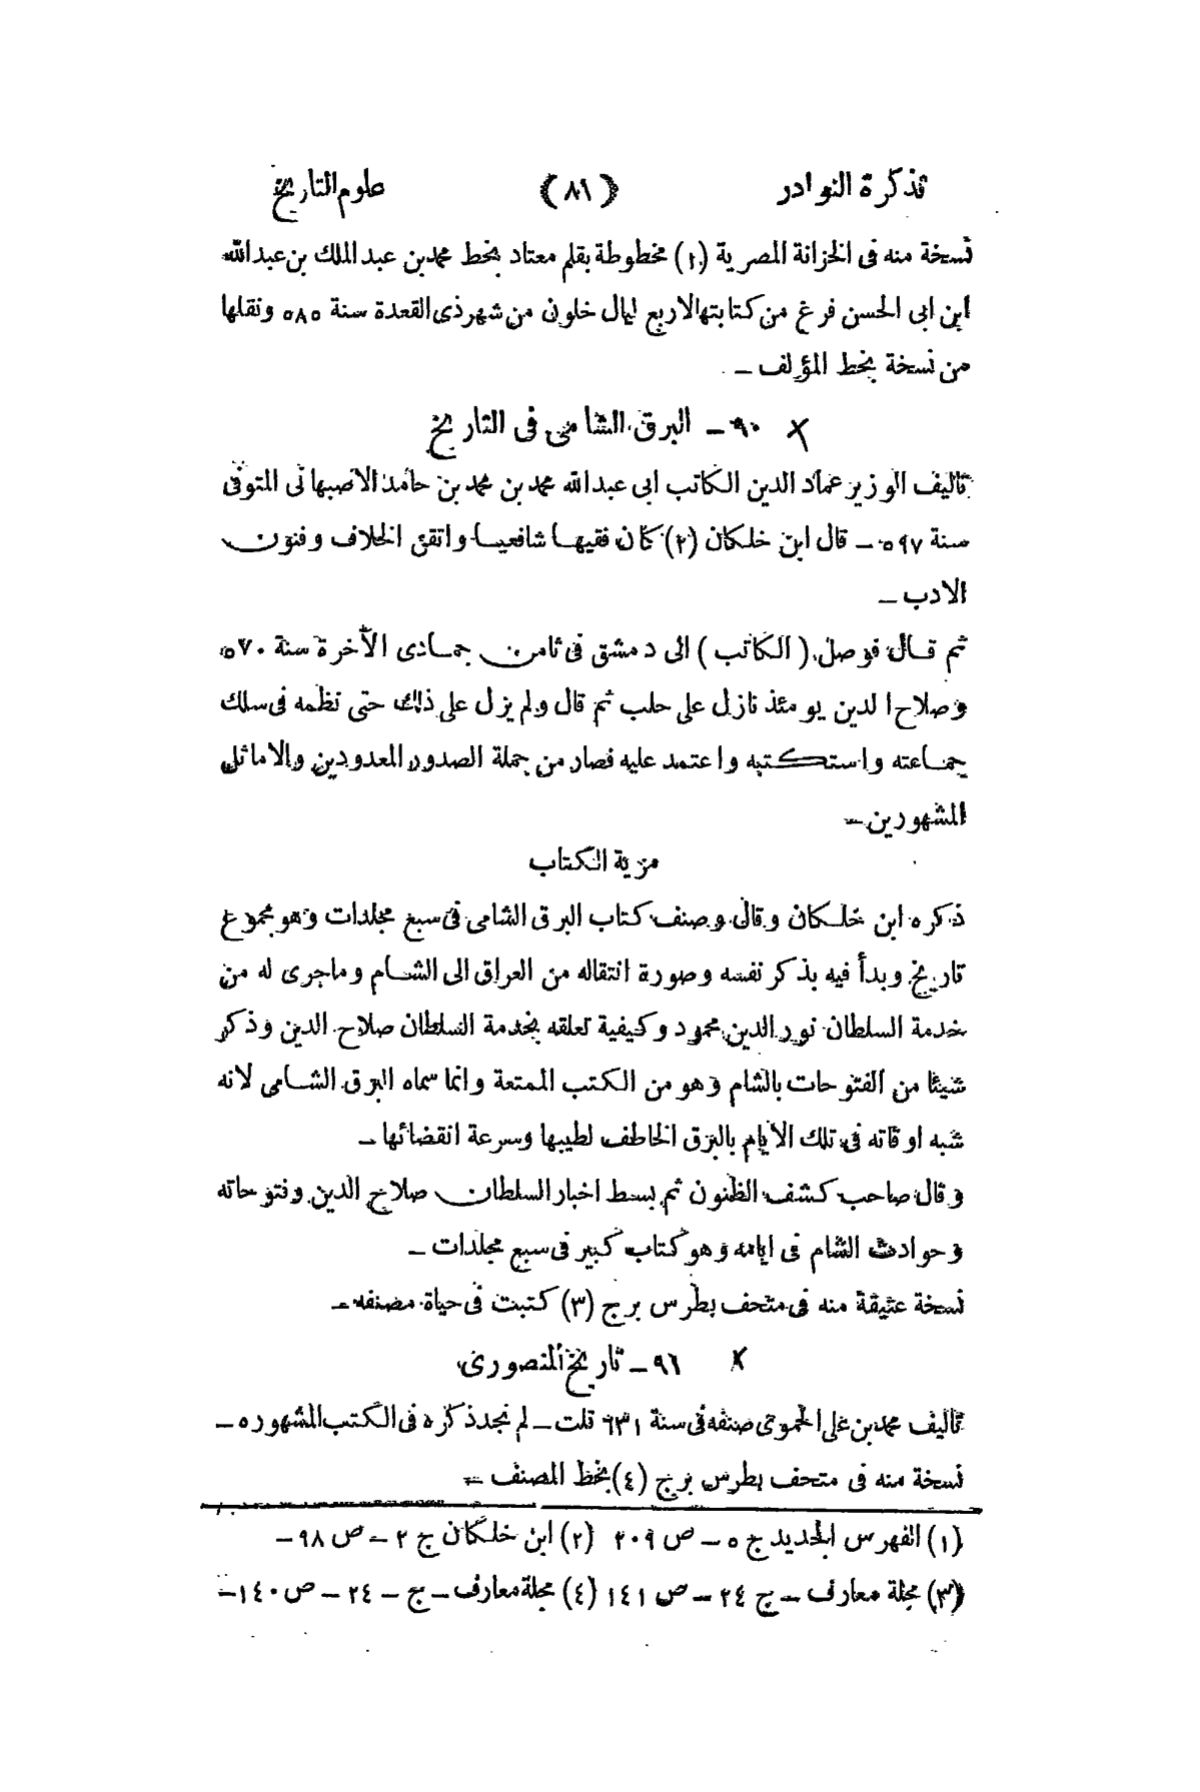 تذكرة النوادر (٨١) علوم التاريخ
نسخة منه فى الخزانة المصرية (١) مخطوطة بقلم معتاد بخط محمد بن عبد الملك بن عبد الله
ابن ابى الحسن فرغ من كتابتها لاربع ليال خلون من شهر ذى القعدة سنة ٥٨٥ ونقلها
من نسخة بخط المؤلف ـ
x ٩٠ ـ البرق الشامى فى التاريخ
تاليف الوزير عماد الدين الكاتب ابى عبد الله محمد بن محمد بن حامد الاصبهانى المتوفى
سنة ٥٩٧ ـ قال ابن خلكان (٢) كان فقيها شافعيا واتقن الخلاف وفنون
الادب ـ
ثم قال فوصل (الكاتب) الى دمشق فى ثامن جمادى الآخرة سنة ٥٧٠
وصلاح الدين يومئذ نازل على حلب ثم قال ولم يزل على ذلك حتى نظمه فى سلك
جماعته واستكتبه واعتمد عليه فصار من جملة الصدور المعدودين والاماثل
المشهورين ـ
مزية الكتاب
ذكره ابن خلكان وقال وصنف كتاب البرق الشامى فى سبع مجلدات وهو مجموع
تاريخ وبدأ فيه بذكر نفسه وصورة انتقاله من العراق الى الشام وماجرى له من
خدمة السلطان نور الدين محمود وكيفية تعلقه بخدمة السلطان صلاح الدين وذكر
شيئا من الفتوحات بالشام وهو من الكتب الممتعة وانما سماه البرق الشامى لانه
شبه اوقاته فى تلك الايام بالبرق الخاطف لطيبها وسرعة انقضائها ـ
وقال صاحب كشف الظنون ثم بسط اخبار السلطان صلاح الدين وفتوحاته
وحوادث الشام فى ايامه وهو كتاب كبير فى سبع مجلدات ـ
نسخة عتيقة منه فى متحف بطرس برج (٣) كتبت فى حياة مصنفه ـ
x ٩٦ ـ تاريخ المنصورى
تاليف محمد بن على الحموى صنفه فى سنة ٦٣١ قلت ـ لم نجد ذكره فى الكتب المشهوره ـ
نسخة منه فى متحف بطرس برج (٤) بخط المصنف ـ
(١) الفهرس الجديد ج ٥ ـ ص ٢٠٩ (٢) ابن خلكان ج ٢ ـ ص ٩٨ ـ
(٣) مجلة معارف ـ ج ٢٤ ـ ص ١٤١ (٤) مجلة معارف ـ ج ـ ٢٤ ـ ص ١٤٠ ـ